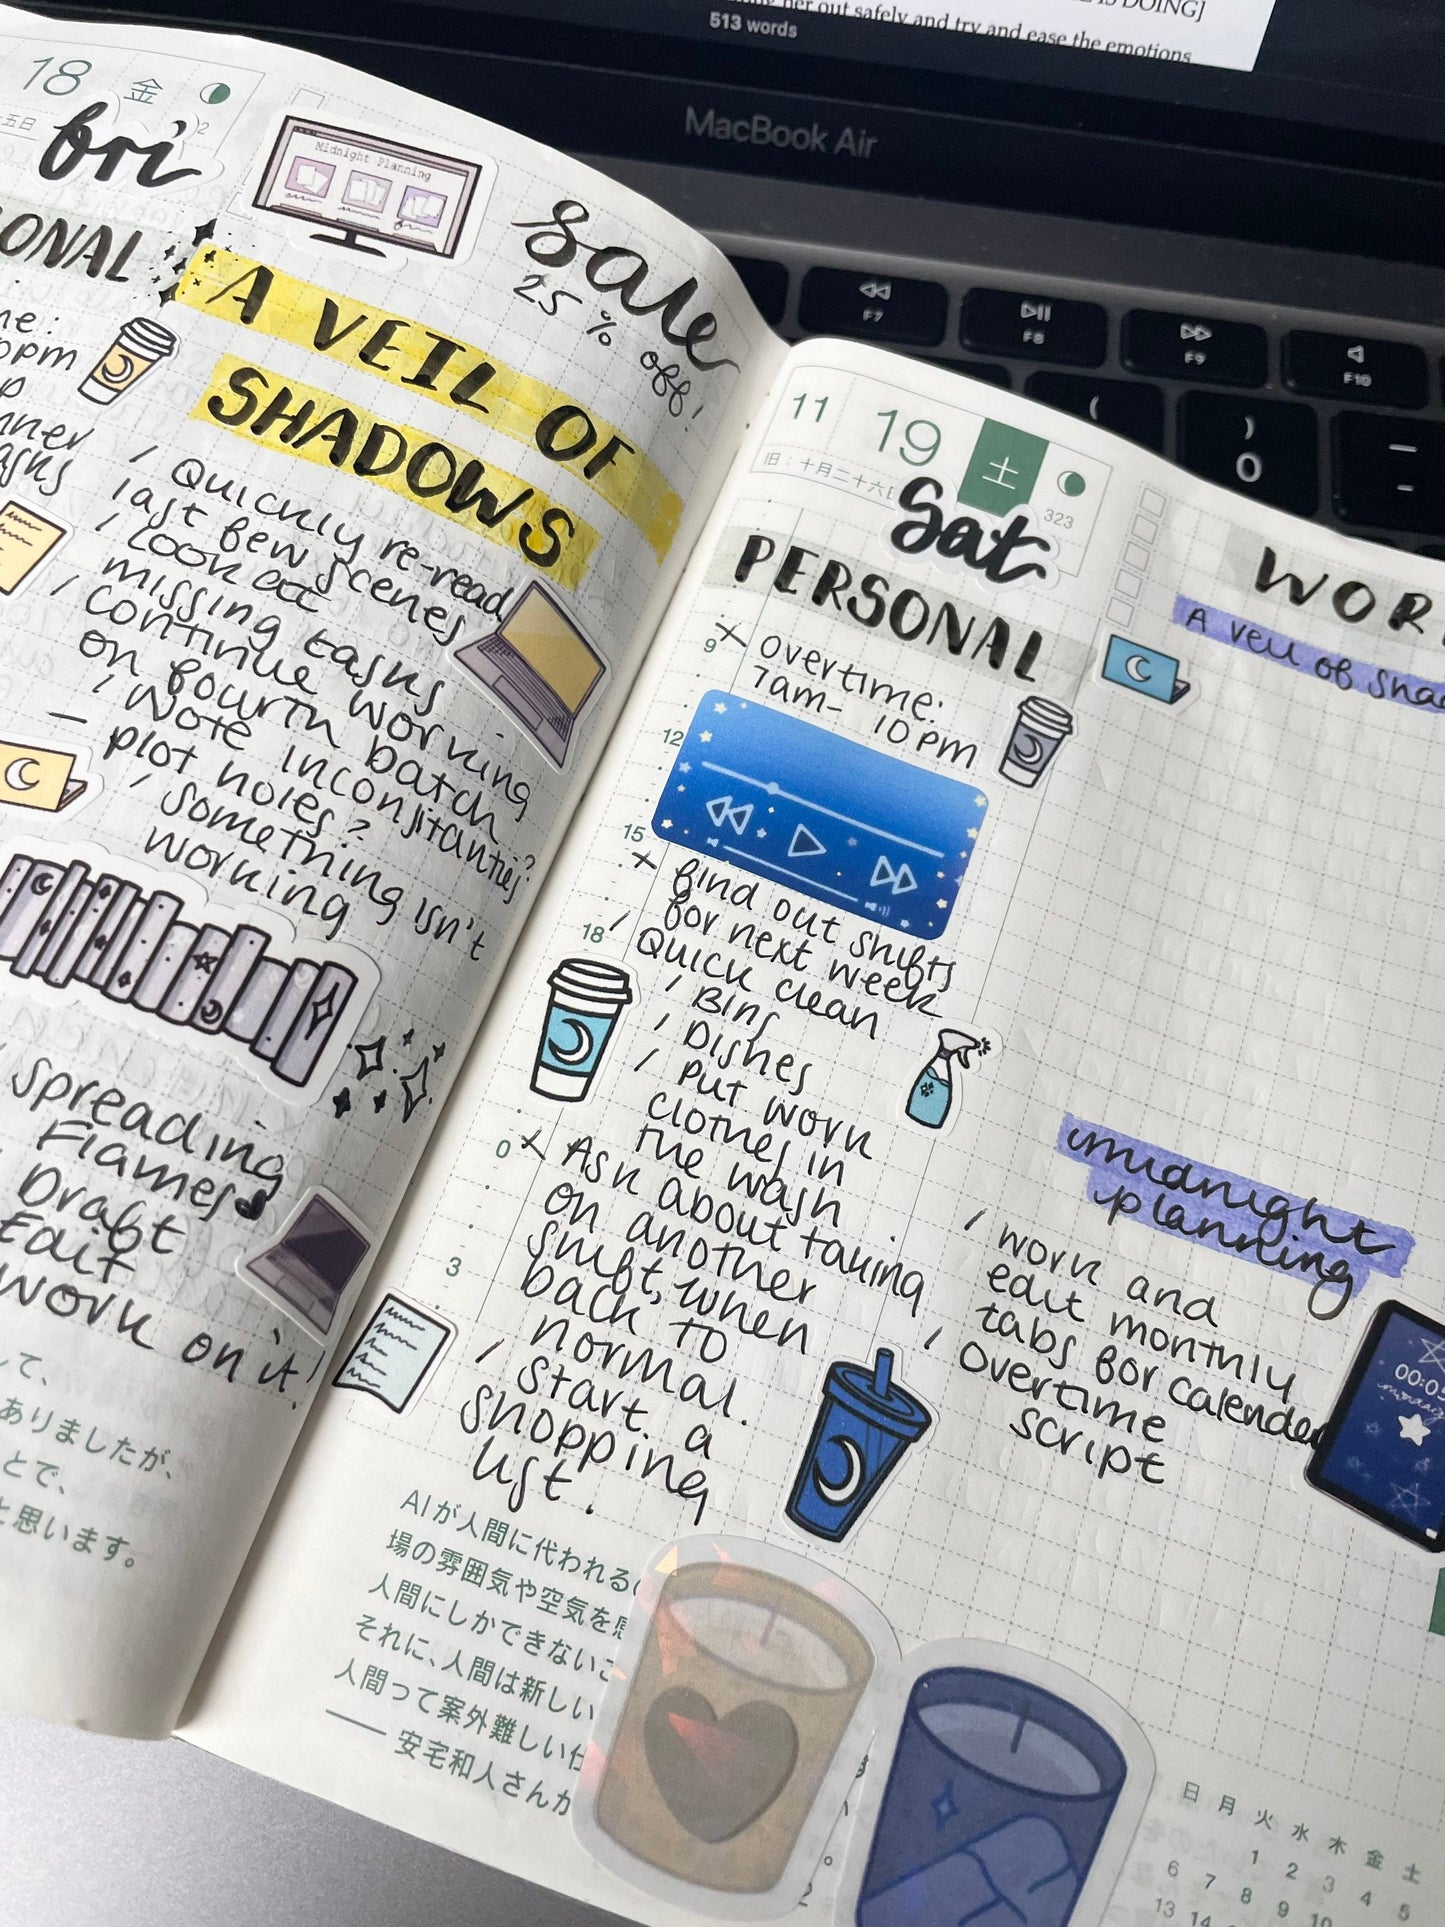 IS DOING]
her out safely and try and ease the emotions
513 words
MacBook Air
F7
F8
F9
F10
)
0
18 金
五日
2
fri
Midnight Planning
Sale
25% off!
SONAL
A VEIL OF
SHADOWS
/ Quickly re-read
last few scenes
/ look at
missing tasks
/ continue working
on fourth batch
/ Note inconsitanties?
— plot holes?
/ something isn't
working
Spreading
Flames
Draft
Edit
work on it!
して、
ありましたが、
とで、
と思います。
11 19 土
旧:十月二十六日
323
Sat
PERSONAL
9
× overtime:
7am- 10pm
12
15
× find out shifts
for next week
18
/ Quick clean
/ Bins
/ Dishes
/ Put work
clothes in
the wash
0
× Ask about taking
on another
shift, when
back to
normal.
3
/ Start a
shopping
list.
WOR
A veil of Sha
midnight
planning
/ work and
edit monthly
tabs for calender
/ overtime
script
00:00
AIが人間に代われる
場の雰囲気や空気を感
人間にしかできないこ
それに、人間は新しい
人間って案外難しい仕
—— 安宅和人さんが
日 月 火 水 木 金 土
1 2 3 4 5
6 7 8 9 10
13 14